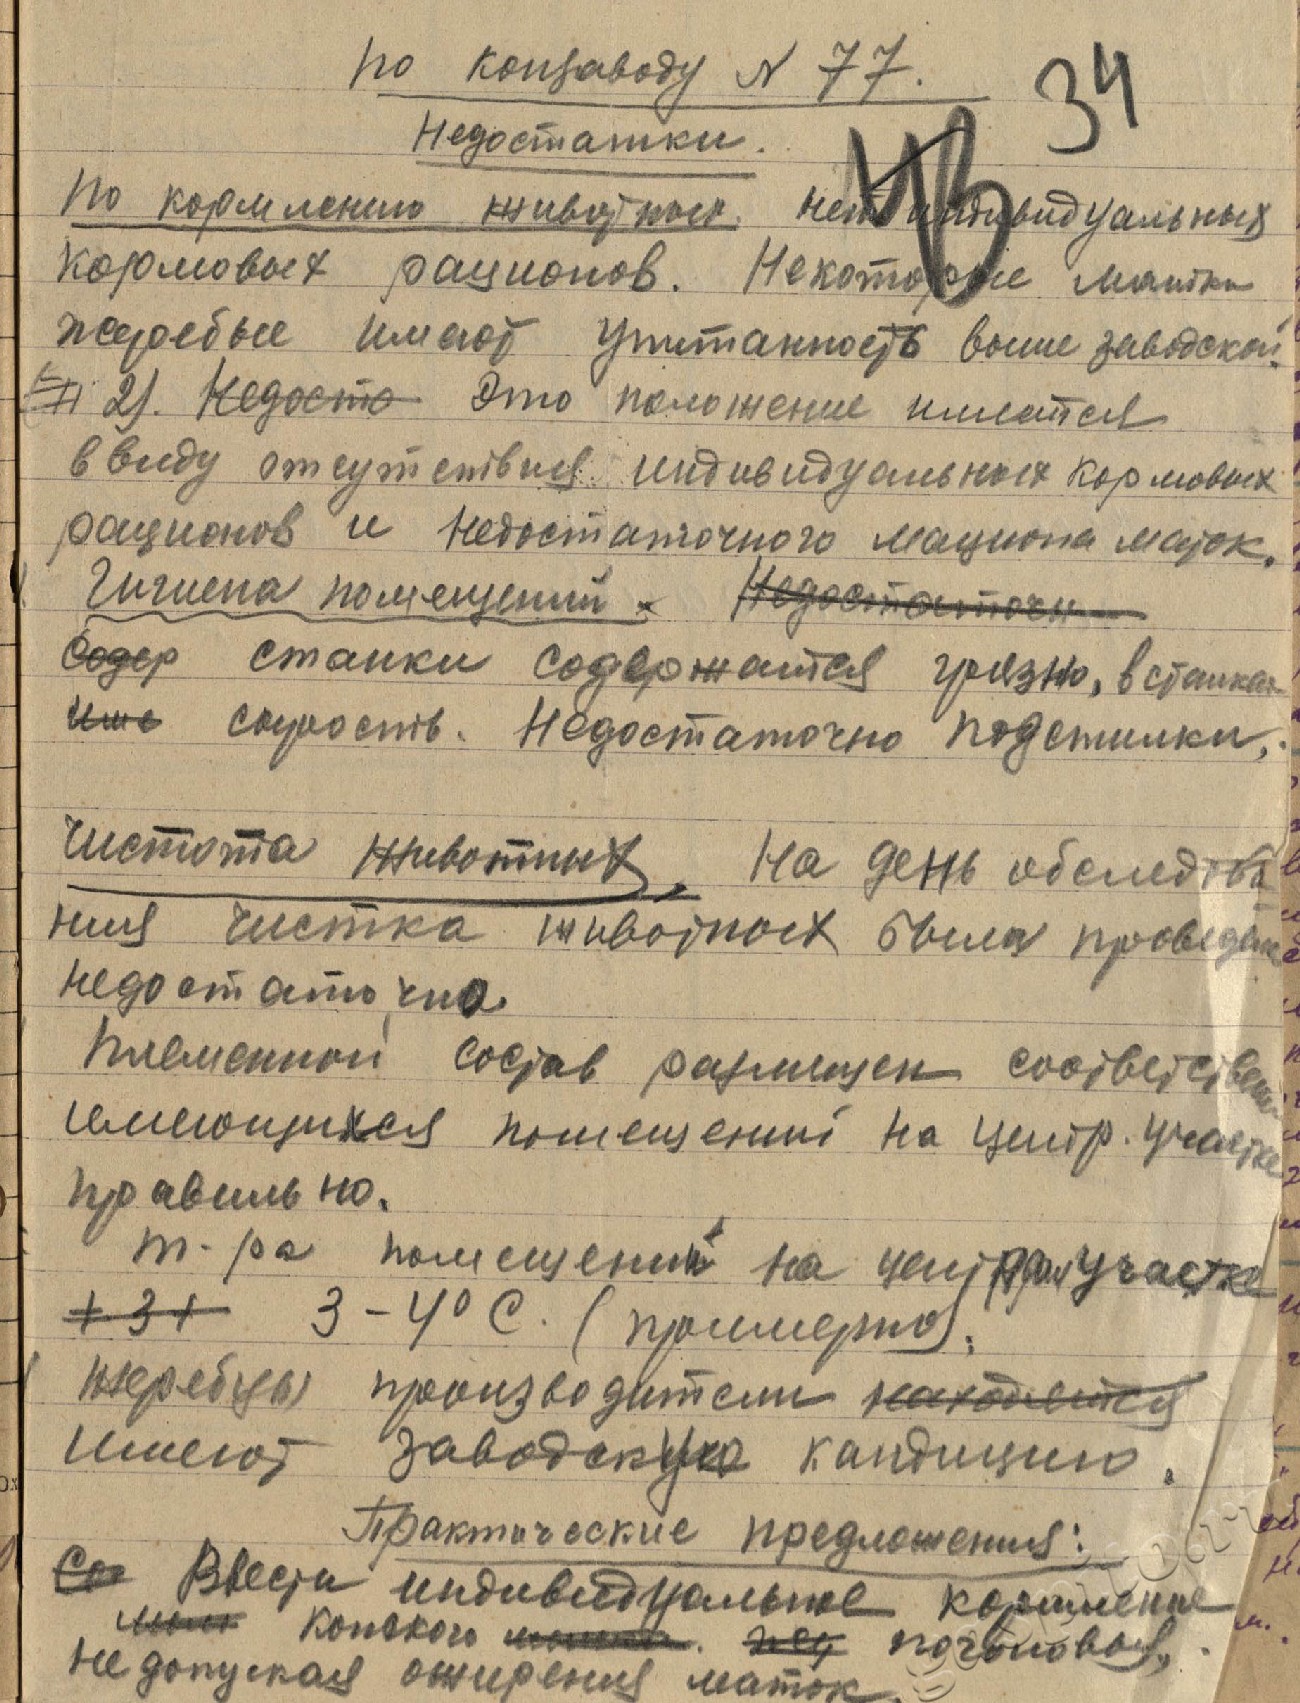 По конзаводу N 77.
34
Недостатки.
По кормлению животных. нет индивидуальных
кормовых рационов. Некоторые матки
жеребые имеют упитанность выше заводской.
2). Недоста Это положение имеется
в виду отсутствия индивидуальных кормовых
рационов и недостаточного мациона маток.
Гигиена помещений. Недостаточн
Содер станки содержатся грязно, в станках
сырость. Недостаточно подстилки,
Чистота животных, На день обследова
ния чистка животных была проведена
недостаточно.
Племенной состав размещен соответственно
имеющихся помещений на центр. участке
правильно.
т-ра помещений на центральн участке
+ 3 + 3-4° С. (примерно).
Жеребцы производители находятся
имеют заводскую кандицию.
Практические предложения:
Со Ввести индивидуальное кормление
конского поголовья,
недопуская ожирения маток.